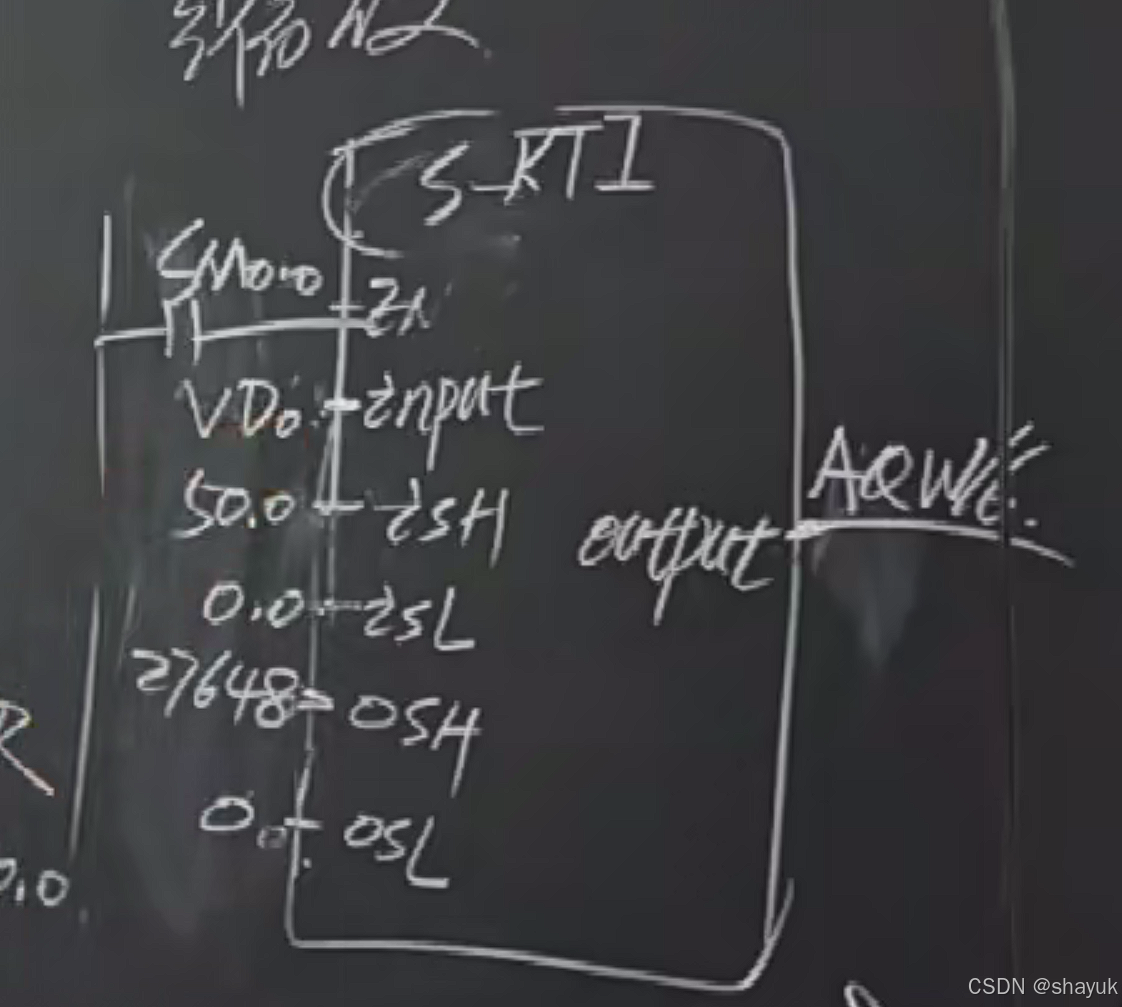 N2
S_RTI
SM0.0
IN
VD0
Input
50.0
ISH
AQW
output
0.0
ISL
27648
OSH
R
0.0
OSL
0.0
CSDN @shayuk